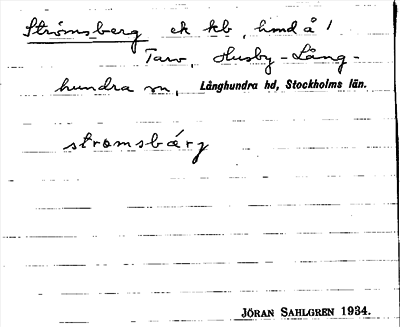 Strömsberg ek kb, hmd å 1
Tarv, Husby-Lång-
hundra sn, Långhundra hd, Stockholms län.
stromsbærj
JÖRAN SAHLGREN 1934.